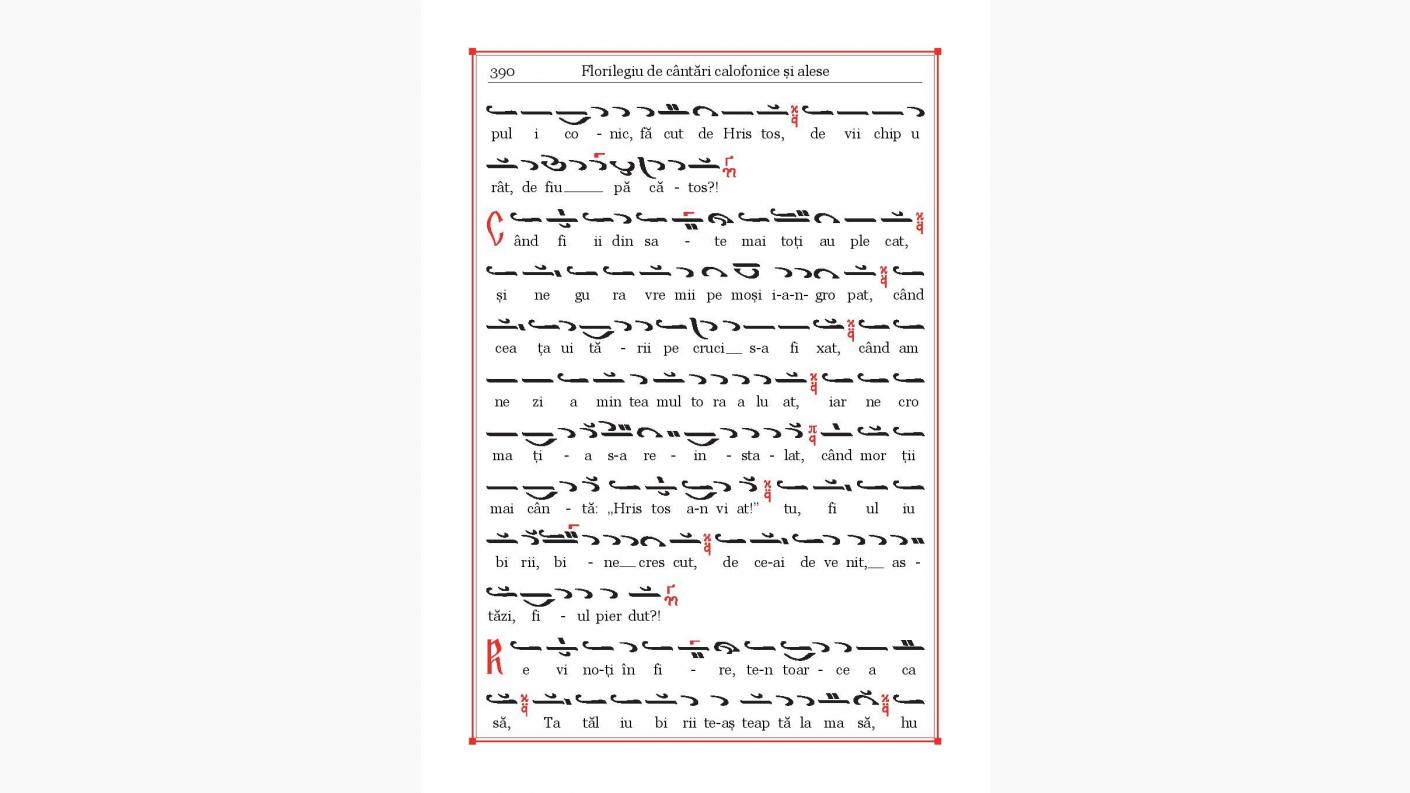 390 Florilegiu de cântări calofonice și alese
pul i co - nic, fă cut de Hris tos, de vii chip u
rât, de fiu_____ pă că - tos?!
Când fi ii din sa - te mai toți au ple cat,
și ne gu ra vre mii pe moși i-a-n- gro pat, când
cea ța ui tă - rii pe cruci__ s-a fi xat, când am
ne zi a min tea mul to ra a lu at, iar ne cro
ma ți - a s-a re - in - sta - lat, când mor ții
mai cân - tă: „Hris tos a-n vi at!” tu, fi ul iu
bi rii, bi - ne__ cres cut, de ce-ai de ve nit,__ as -
tăzi, fi - ul pier dut?!
Re vi no-ți în fi - re, te-n toar - ce a ca
să, Ta tăl iu bi rii te-aș teap tă la ma să, hu